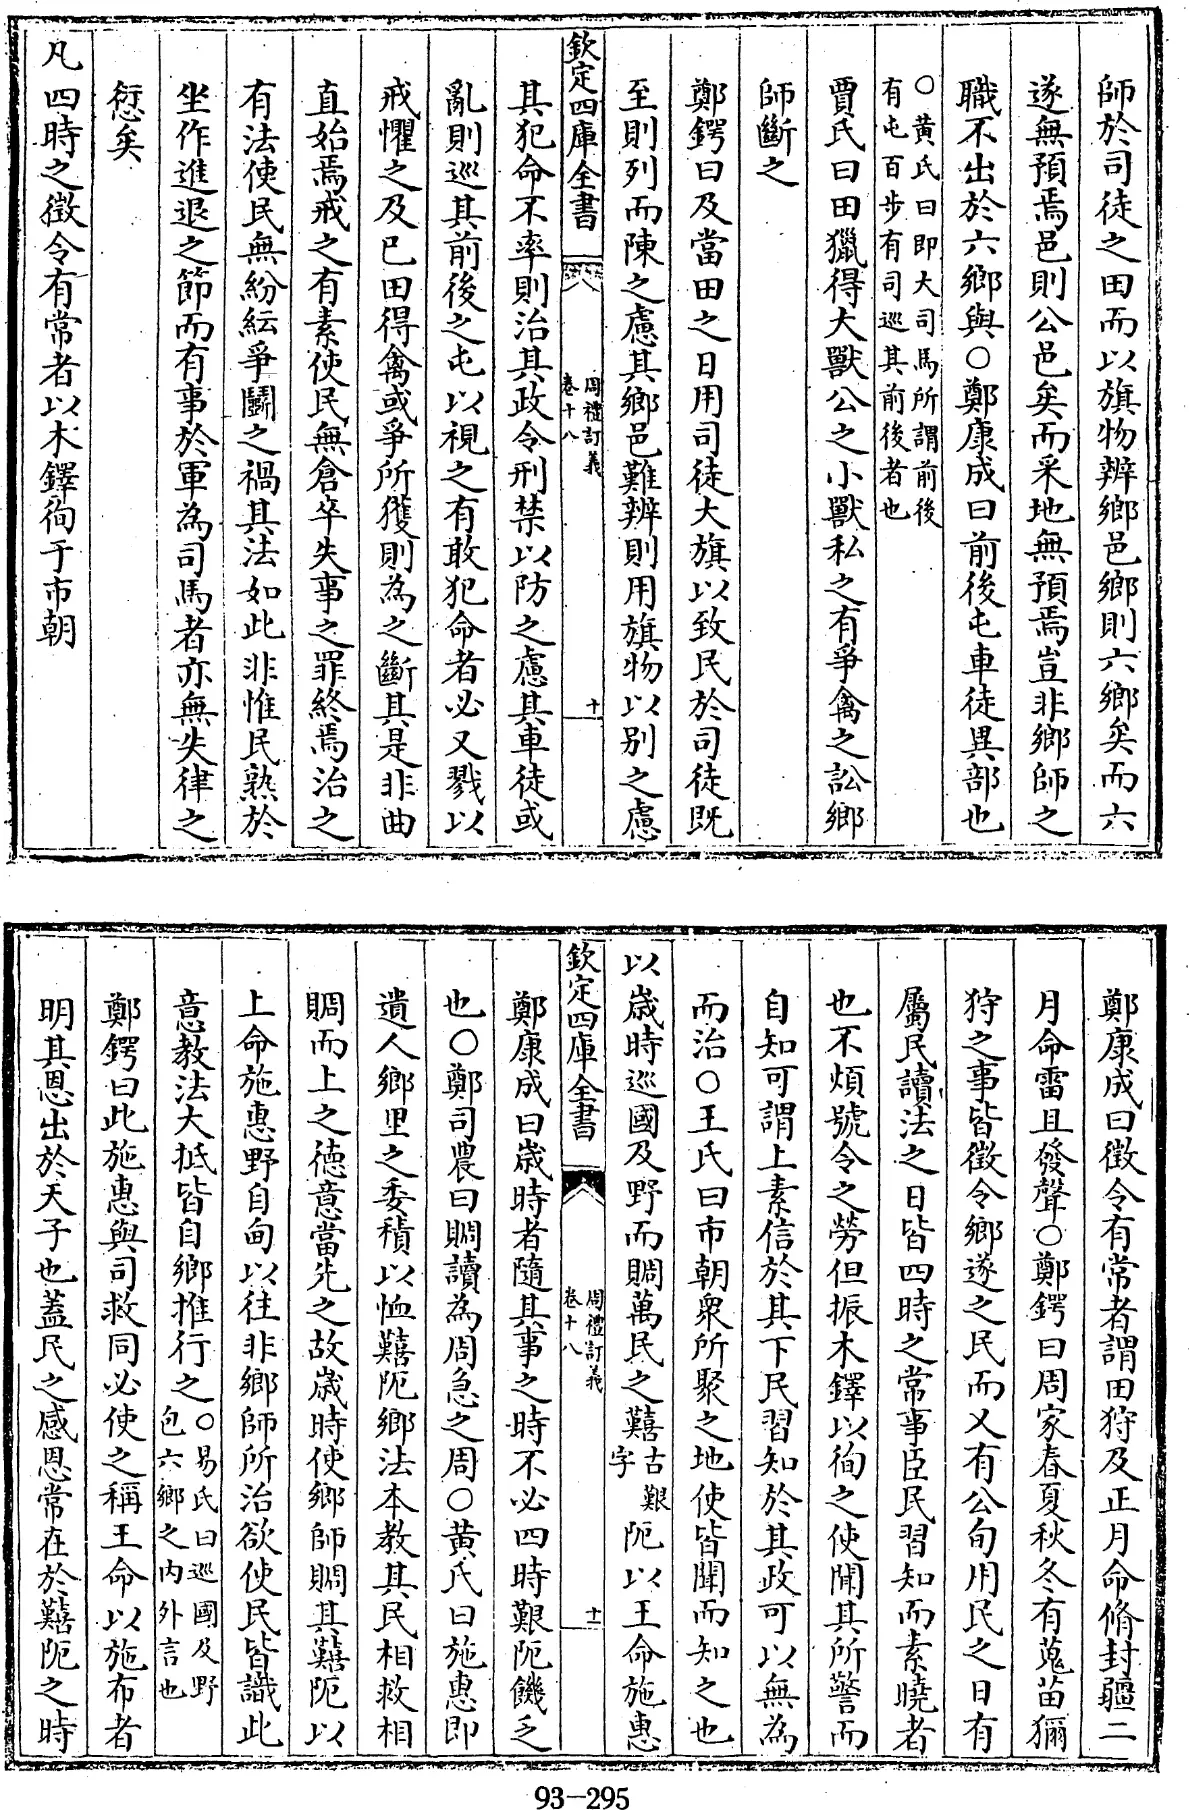 師於司徒之田而以旗物辨鄉邑鄉則六鄉矣而六
遂無預焉邑則公邑矣而采地無預焉豈非鄉師之
職不出於六鄉與○鄭康成曰前後屯車徒異部也
○黃氏曰即大司馬所謂前後
有屯百步有司巡其前後者也
賈氏曰田獵得大獸公之小獸私之有爭禽之訟鄉
師斷之
鄭鍔曰及當田之日用司徒大旗以致民於司徒既
至則列而陳之慮其鄉邑難辨則用旗物以別之慮
欽定四庫全書
周禮訂義
卷十八
十
其犯命不率則治其政令刑禁以防之慮其車徒或
亂則巡其前後之屯以視之有敢犯命者必又戮以
戒懼之及巳田得禽或爭所獲則為之斷其是非曲
直始焉戒之有素使民無倉卒失事之罪終焉治之
有法使民無紛紜爭鬭之禍其法如此非惟民熟於
坐作進退之節而有事於軍為司馬者亦無失律之
愆矣
凡四時之徵令有常者以木鐸徇于市朝
鄭康成曰徵令有常者謂田狩及正月命脩封疆二
月命雷且發聲○鄭鍔曰周家春夏秋冬有蒐苗獮
狩之事皆徵令鄉遂之民而又有公旬用民之日有
屬民讀法之日皆四時之常事臣民習知而素曉者
也不煩號令之勞但振木鐸以徇之使聞其所警而
自知可謂上素信於其下民習知於其政可以無為
而治○王氏曰市朝衆所聚之地使皆聞而知之也
以歲時巡國及野而賙萬民之囏古艱字阨以王命施惠
欽定四庫全書
周禮訂義
卷十八
十一
鄭康成曰歲時者隨其事之時不必四時艱阨饑乏
也○鄭司農曰賙讀為周急之周○黃氏曰施惠即
遺人鄉里之委積以恤囏阨鄉法本教其民相救相
賙而上之德意當先之故歲時使鄉師賙其囏阨以
上命施惠野自甸以往非鄉師所治欲使民皆識此
意教法大抵皆自鄉推行之○易氏曰巡國及野
包六鄉之内外言也
鄭鍔曰此施惠與司救同必使之稱王命以施布者
明其恩出於天子也蓋民之感恩常在於囏阨之時
93-295